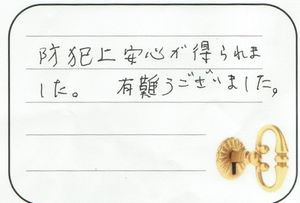 防犯上安心が得られま
した。 有難うございました。